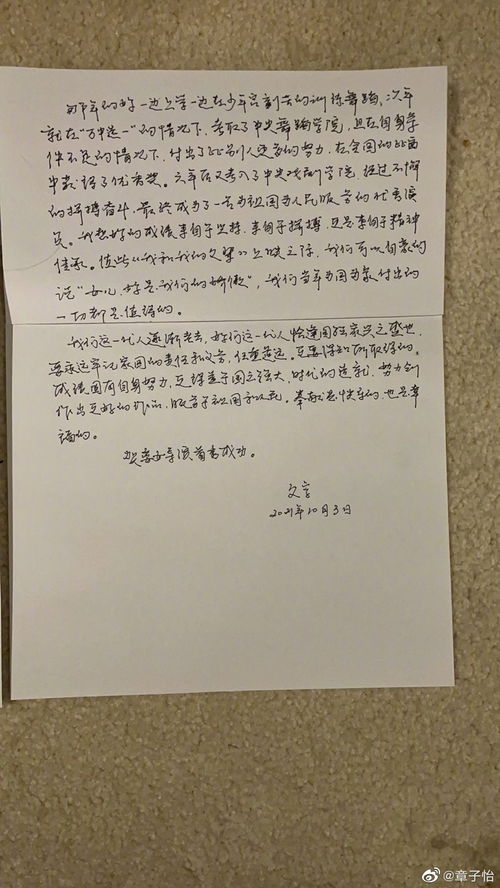 那年的她一边上学一边在少年宫刻苦的训练舞蹈，次年
就在"万中选一"的情况下，考取了中央舞蹈学院，且在自身条
件不足的情况下，付出了比别人更多的努力，在全国的比赛
中获得了优秀奖。六年后又考入了中央戏剧学院，经过不懈
的拼搏奋斗，最终成为了一名为祖国为人民服务的优秀演
员。我想她的成绩来自于坚持，来自于拼搏，更是来自于精神
传承。值此《我和我的父辈》上映之际，我们可以自豪的
说"女儿，妳是我们的骄傲"，我们当年为国为家付出的
一切都是值得的。
我们这一代人逐渐老去，妳们这一代人恰逢国强家兴之盛世，
要永远牢记家国的责任和义务，任重道远。更要深知所取得的
成绩固有自身努力，更得益于国之强大，时代的造就，努力创
作出更好的作品，服务于祖国和人民。奉献是快乐的，也是幸
福的。
祝子导演首秀成功。
父字
2021年10月3日
@章子怡